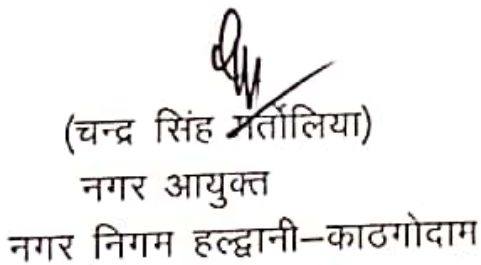 (चन्द्र सिंह मर्तोलिया)
नगर आयुक्त
नगर निगम हल्द्वानी–काठगोदाम